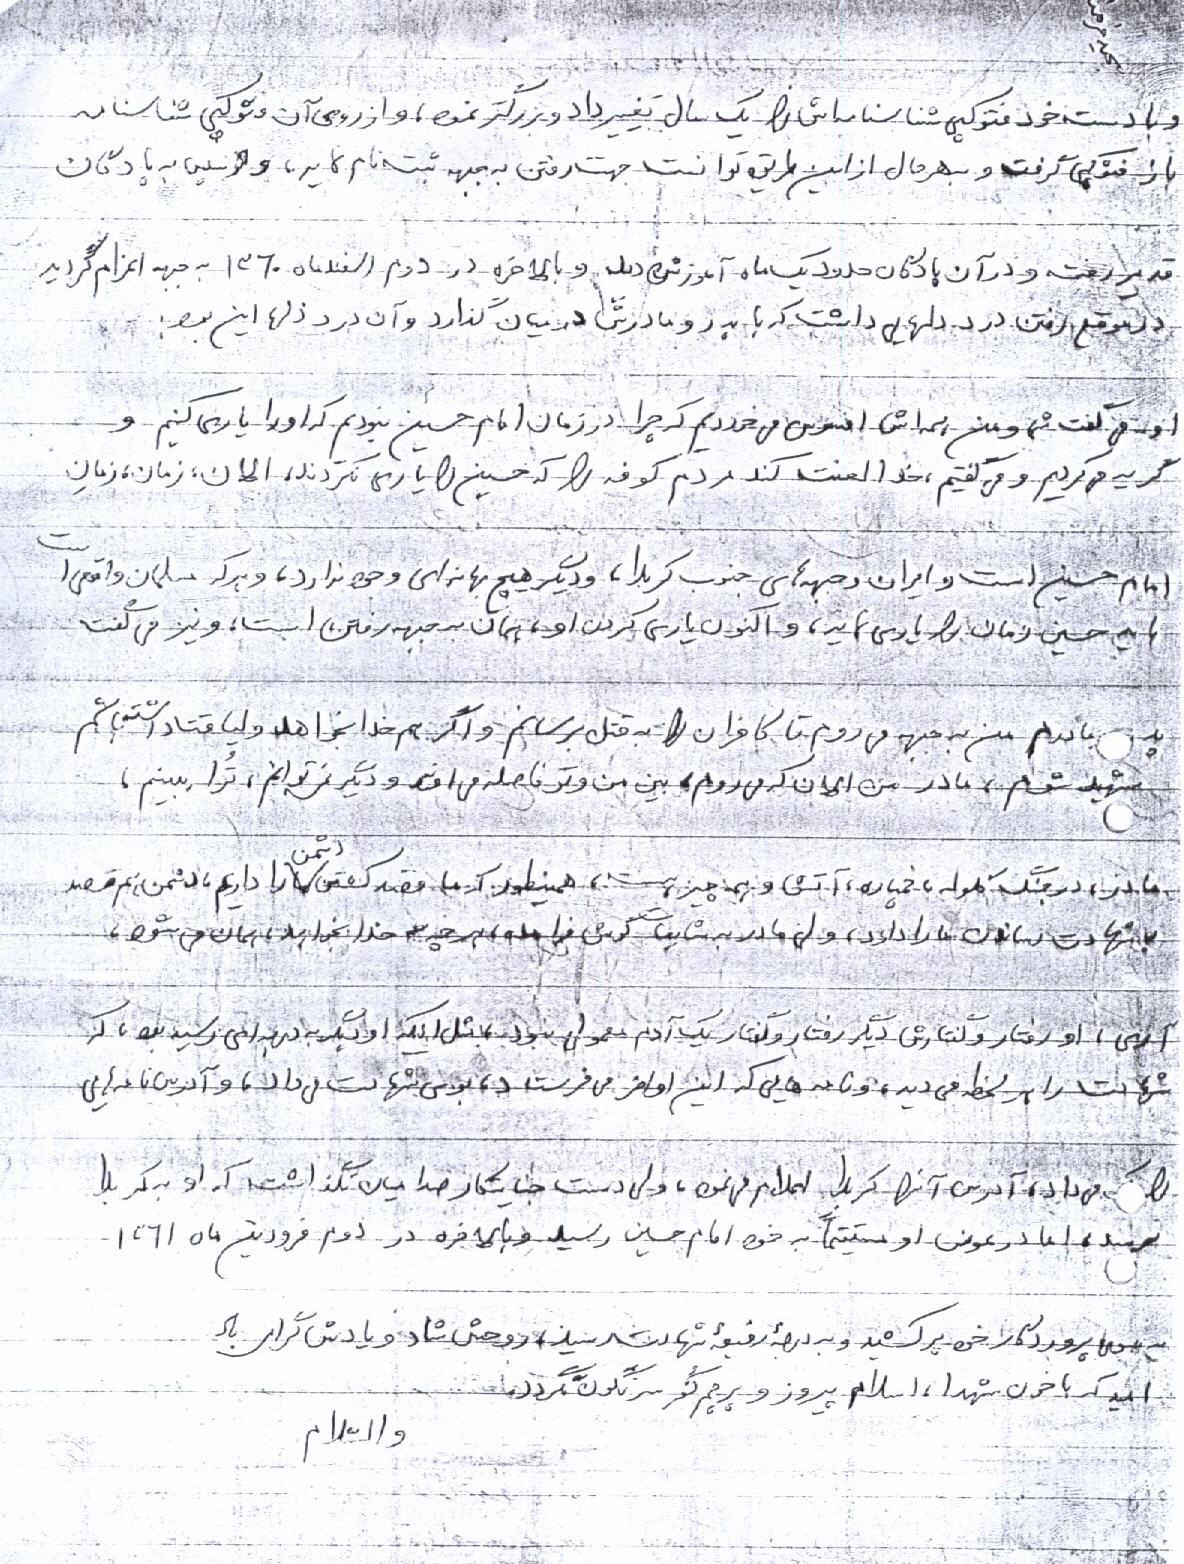 و با دست خود فتوکپی شناسنامه‌اش را یک سال تغییر داد و بزرگتر نموده، و از روی آن فتوکپی شناسنامه
باز فتوکپی گرفت و بهر حال از این طریق توانست جهت رفتن به جبهه ثبت نام نماید، و سپس به پادگان
قدیر رفت و در آن پادگان حدود یک ماه آموزش دید و بالاخره در دوم اسفندماه ۱۳۶۰ به جبهه اعزام گردید
در موقع رفتن درد دلهایی داشت که با پدر و مادرش در میان گذارد و آن درد دلها این بود:
او می‌گفت شما و من همه‌اش افسوس می‌خوردیم که چرا در زمان امام حسین نبودیم که او را یاری کنیم و
گریه می‌کردیم و می‌گفتیم، خدا لعنت کند مردم کوفه را که حسین را یاری نکردند، الان، زمان، زمانِ
امام حسین است و ایران و جبهه‌های جنوب کربلا، و دیگر هیچ بهانه‌ای وجود ندارد، و هر که مسلمان واقعی است
باید حسین زمان را یاری نماید، و اکنون یاری کردن او، همان به جبهه رفتن است، و نیز می‌گفت
مادرم من به جبهه می‌روم تا کافران را به قتل برسانم و اگر هم خدا بخواهد و لیاقت داشته باشم
شهید شوم، مادر من الان که می‌روم، بین من و تو فاصله می‌افتد و دیگر نمی‌توانم، تُو را ببینم،
مادر، در جنگ گلوله، خمپاره، آتش و همه چیز هست، همینطور که ما قصد کشتن دشمن را داریم دشمن هم قصد
به شهادت رساندن ما را دارد، ولی مادر به شایعات گوش فرا مده، هر چه خدا بخواهد، همان می‌شود،
آری، او رفتار و گفتارش دیگر رفتار و گفتار یک آدم معمولی نبود، مثل اینکه او دیگر به درجه‌ای رسیده بود، که
شهادت را هر لحظه می‌دید، و نامه‌هایی که این اواخر می‌فرستاد، بوی شهادت می‌داد، و آدرس نامه‌هایی
را که می‌داد، آدرس آنرا کربلا اعلام می‌نمود، ولی دست جنایتکار صدامیان نگذاشت که او به کربلا
برسد، اما در عوض او مستقیماً به خود امام حسین رسید و بالاخره در دوم فروردین ماه ۱۳۶۱
به سوی پروردگار خود پر کشید و به درجهٔ رفیع شهادت رسید، روحش شاد و یادش گرامی باد
امید که با خون شهدا، اسلام پیروز و پرچم کفر سرنگون گردد.
والسلام